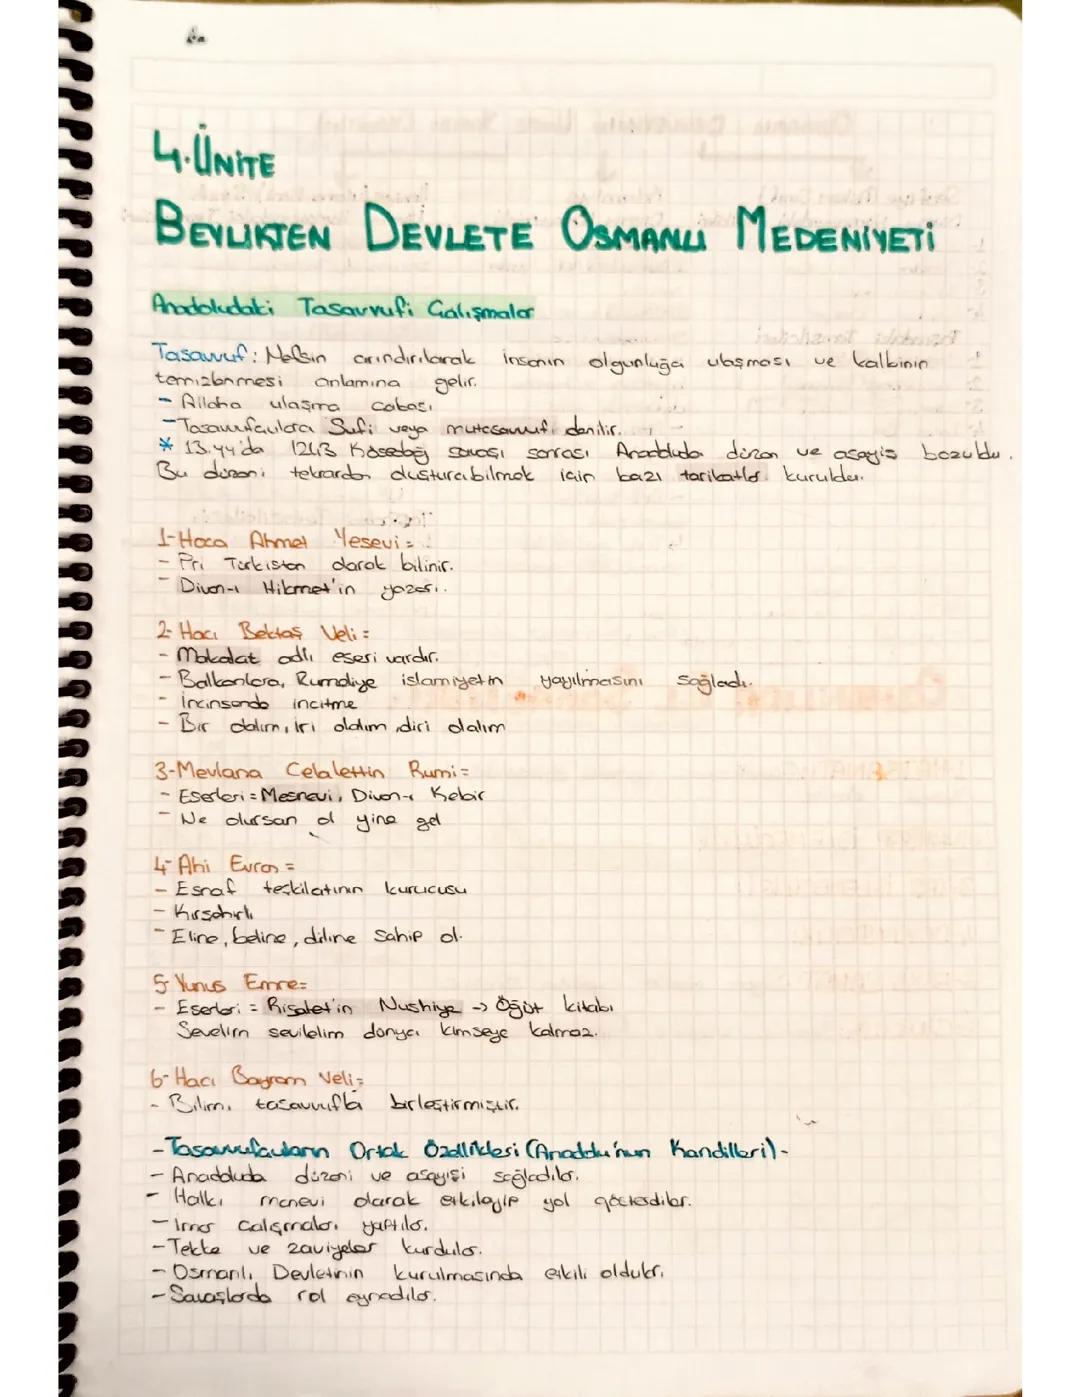 4.ÜNİTE
BEYLİKTEN DEVLETE OSMANLI MEDENİYETİ
Anadoludaki Tasavvufi Çalışmalar
Tasavvuf: Nefsin arındırılarak insanın olgunluğa ulaşması ve kalbinin
temizlenmesi anlamına gelir.
- Allaha ulaşma çabası
- Tasavvufçulara Sufi veya mutasavvıf denilir.
* 13.yy'da 1243 Kösedağ savaşı sonrası Anadoluda düzen ve asayiş bozuldu.
Bu düzeni tekrardan oluşturabilmek için bazı tarikatlar kuruldu.
1-Hoca Ahmet Yesevi=
- Piri Türkistan olarak bilinir.
- Divan-ı Hikmet'in yazarı.
2-Hacı Bektaş Veli=
- Makalat adlı eseri vardır.
- Balkanlara, Rumeliye islamiyetin yayılmasını sağladı.
- İncinsende incitme
- Bir olalım, iri olalım, diri olalım
3-Mevlana Celalettin Rumi=
- Eserleri = Mesnevi, Divan-ı Kebir
- Ne olursan ol yine gel
4-Ahi Evran =
- Esnaf teşkilatının kurucusu
- Kırşehirli
- Eline, beline, diline sahip ol.
5-Yunus Emre=
- Eserleri = Risalet'in Nushiye -> Öğüt kitabı
Sevelim sevilelim dünya kimseye kalmaz.
6-Hacı Bayram Veli=
- Bilimi tasavvufla birleştirmiştir.
-Tasavvufçuların Ortak Özellikleri (Anadolu'nun Kandilleri)-
- Anadoluda düzeni ve asayişi sağladılar.
- Halkı manevi olarak etkileyip yol gösterdiler.
- İmar çalışmaları yaptılar.
- Tekke ve zaviyeler kurdular.
- Osmanlı Devletinin kurulmasında etkili oldular.
- Savaşlarda rol oynadılar.